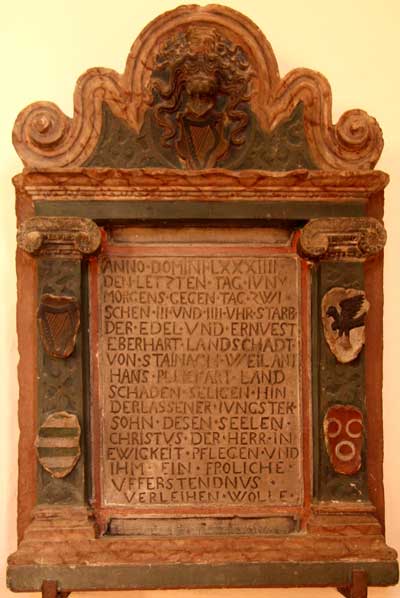 ANNO·DOMINI·LXXXIIII
DEN·LETZTEN·TAG·IVNY
MORGENS·GEGEN·TAG·ZWI
SCHEN·III·VND·IIII·VHR·STARB
DER·EDEL·VND·ERNVEST
EBERHART·LANDSCHADT
VON·STAINACH·WEILANT
HANS·LAND
SCHADEN·SELIGEN·HIN
DERLASSENER·IVNGSTER
SOHN·DESEN·SEELEN·
CHRISTVS·DER·HERR·IN
EWIGKEIT·PFLEGEN·VND
IHM·EIN·FROLICHE·
VFFERSTENDNVS·
VERLEIHEN·WOLLE·